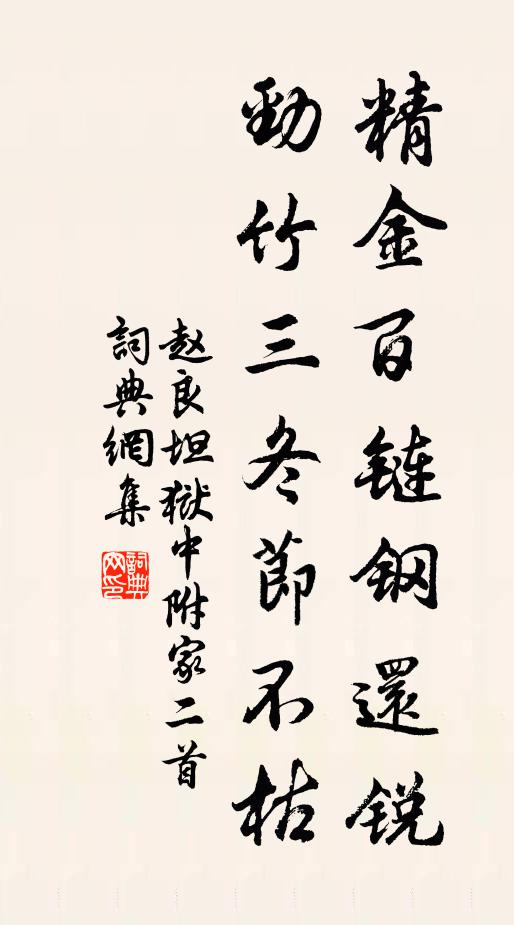 精金百鏈鋼還銳
勁竹三冬節不枯
赵良坦獄中附家二首
詞典網集
詞典网印